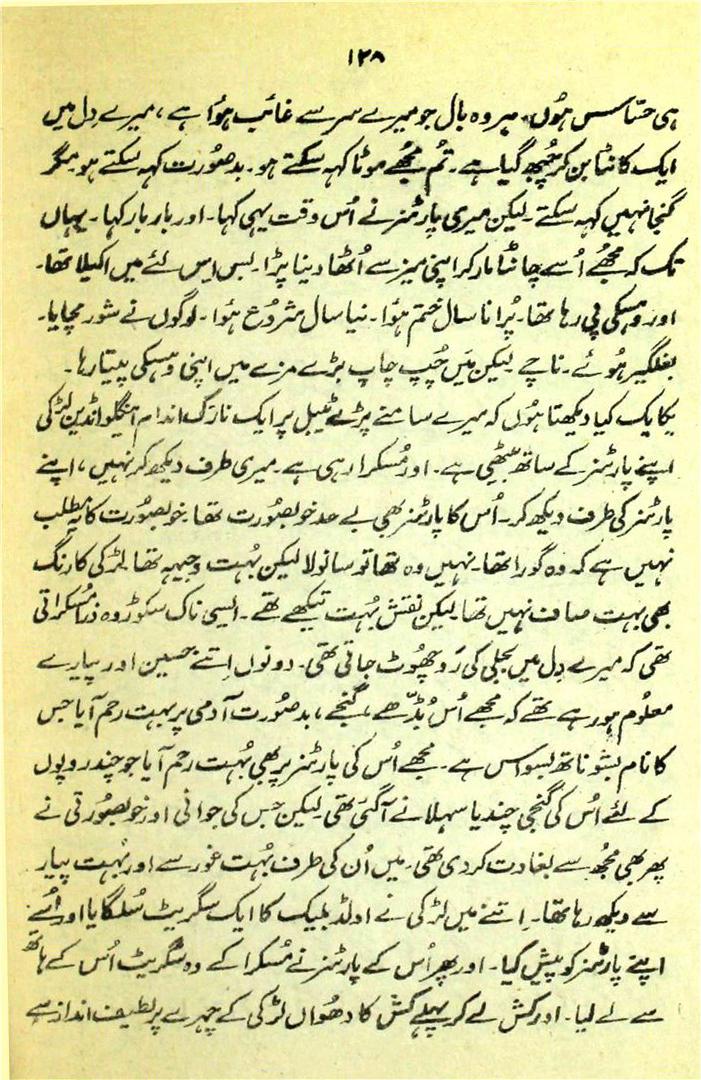 ۱۲۸
ہی حسّاس ہُوں۔ ہر وہ بال جو میرے سر سے غائب ہؤا ہے، میرے دِل میں
ایک کانٹا بن کر چُبھ گیا ہے۔ تُم مجُھے موٹا کہہ سکتے ہو۔ بدصُورت کہہ سکتے ہو مگر
گنجا نہیں کہہ سکتے۔ لیکن میری پارٹنر نے اُس وقت یہی کہا۔ اور بار بار کہا۔ یہاں
تک کہ مجھُے اُسے چانٹا مار کر اپنی میز سے اُٹھا دینا پڑا۔ بس اِس لئے میں اکیلا تھا۔
اور وہسکی پی رہا تھا۔ پُرانا سال ختم ہؤا۔ نیا سال شرُوع ہؤا۔ لوگوں نے شور مچایا۔
بغلگیر ہُوئے۔ ناچے لیکن مَیں چُپ چاپ بڑے مزے میں اپنی وہسکی پیتا رہا۔
یکایک کیا دیکھتا ہُوں کہ میرے سامنے پرے ٹیبل پر ایک نازک اندام اینگلو انڈین لڑکی
اپنے پارٹنر کے ساتھ بیٹھی ہے۔ اور مُسکرا رہی ہے۔ میری طرف دیکھ کر نہیں، اپنے
پارٹنر کی طرف دیکھ کر۔ اُس کا پارٹنر بھی بے حد خوبصُورت تھا۔ خوبصُورت کا یہ مطلب
نہیں ہے کہ وہ گورا تھا۔ نہیں وہ تھا تو سانولا لیکن بُہت وجیہہ تھا۔ لڑکی کا رنگ
بھی بہت صاف نہیں تھا۔ لیکن نقش بُہت تیکھے تھے۔ ایسی ناک سکوڑ وہ ذرا مُسکراتی
تھی کہ میرے دِل میں بجلی کی رَو چھُوٹ جاتی تھی۔ دونوں اِتنے حسین اور پیارے
معلُوم ہو رہے تھے کہ مجھے اُس بُڈّھے، گنجے، بدصُورت آدمی پر بہت رحم آیا جس
کا نام بشوناتھ بسواس ہے۔ مجھے اُس کی پارٹنر پر بھی بُہت رحم آیا جو چند روپوں
کے لئے اُس کی گنجی چندیا سہلانے آ گئی تھی۔ لیکن جس کی جوانی اور خوبصُورتی نے
پھر بھی مجُھ سے بغاوت کر دی تھی۔ میں اُن کی طرف بُہت غور سے اور بُہت پیار
سے دیکھ رہا تھا۔ اِتنے میں لڑکی نے اولڈ بلیک کا ایک سگریٹ سُلگایا اور اُسے
اپنے پارٹنر کو پیش کیا۔ اور پھر اُس کے پارٹنر نے مُسکرا کے وہ سگریٹ اُس کے ہاتھ
سے لے لیا۔ اور کش لے کر پہلے کش کا دھُواں لڑکی کے چہرے پر لطیف انداز سے